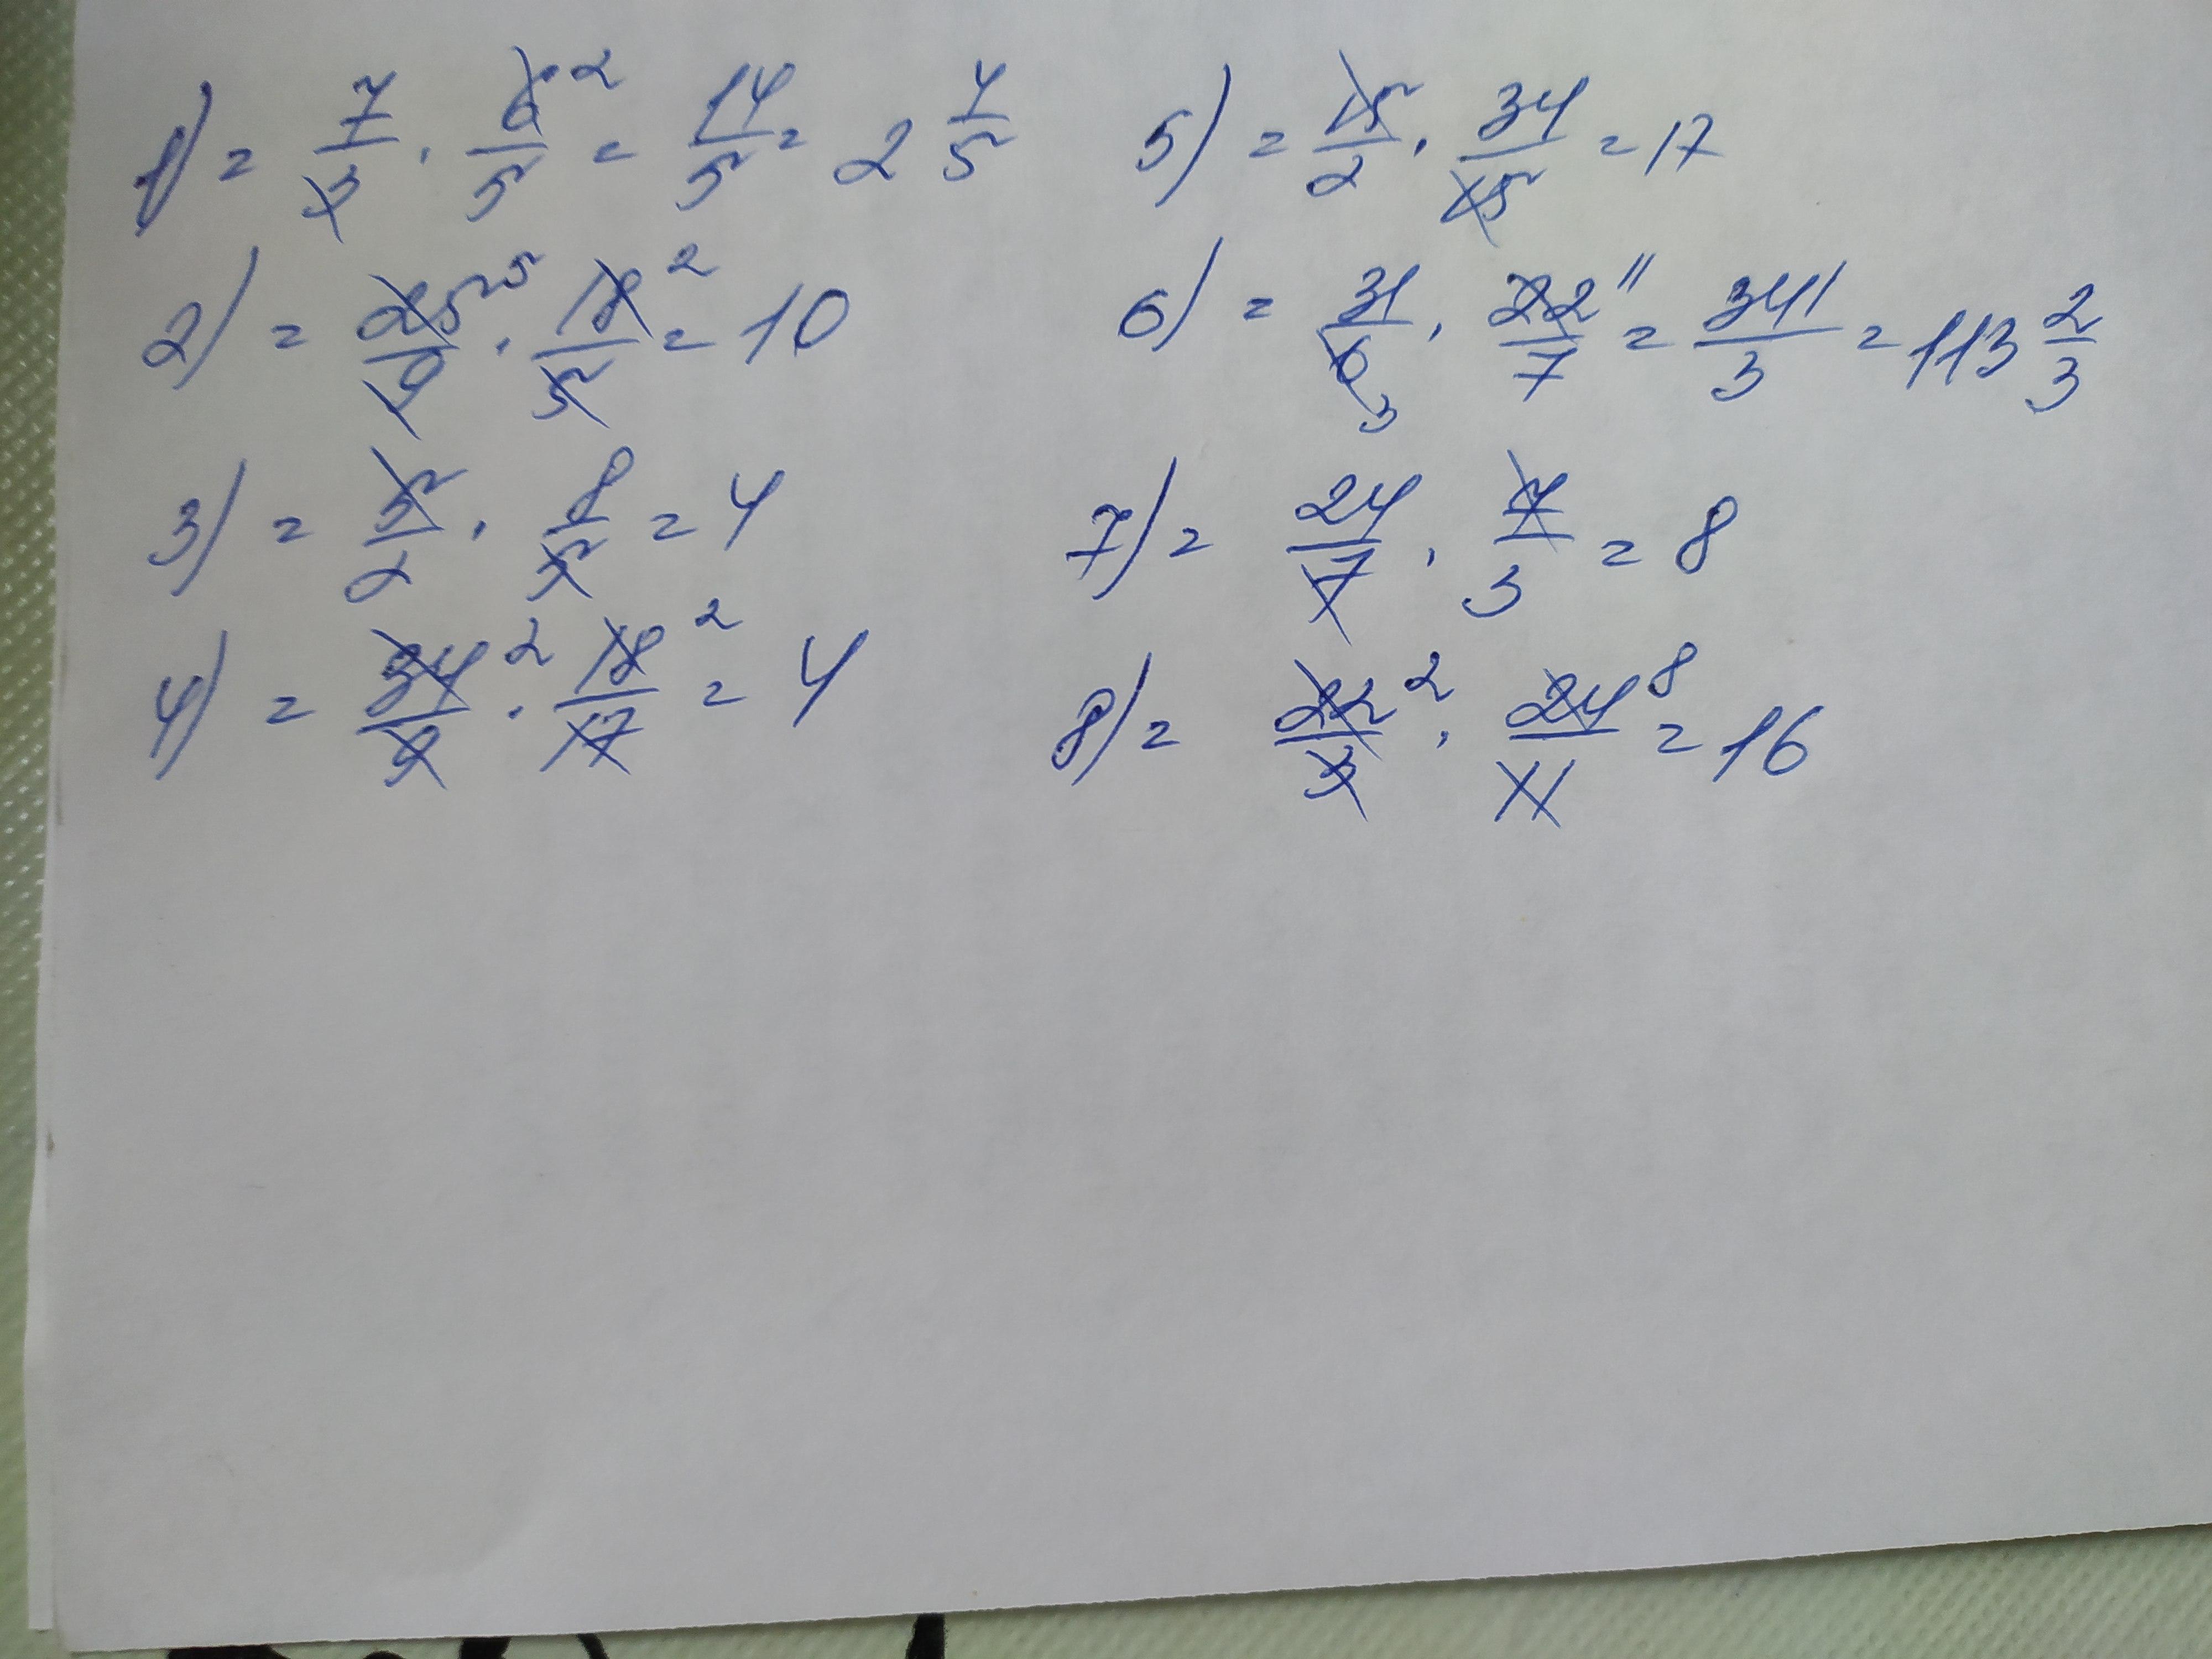 1) = 7/3 · 6/5 2 = 14/5 = 2 4/5
2) = 25/9 5 · 18/5 2 = 10
3) = 5/2 · 8/5 = 4
4) = 34/9 2 · 18/17 2 = 4
5) = 15/2 · 34/15 = 17
6) = 31/6 3 · 22/7 11 = 341/3 = 113 2/3
7) = 24/7 · 7/3 = 8
8) = 22/3 2 · 24/11 8 = 16